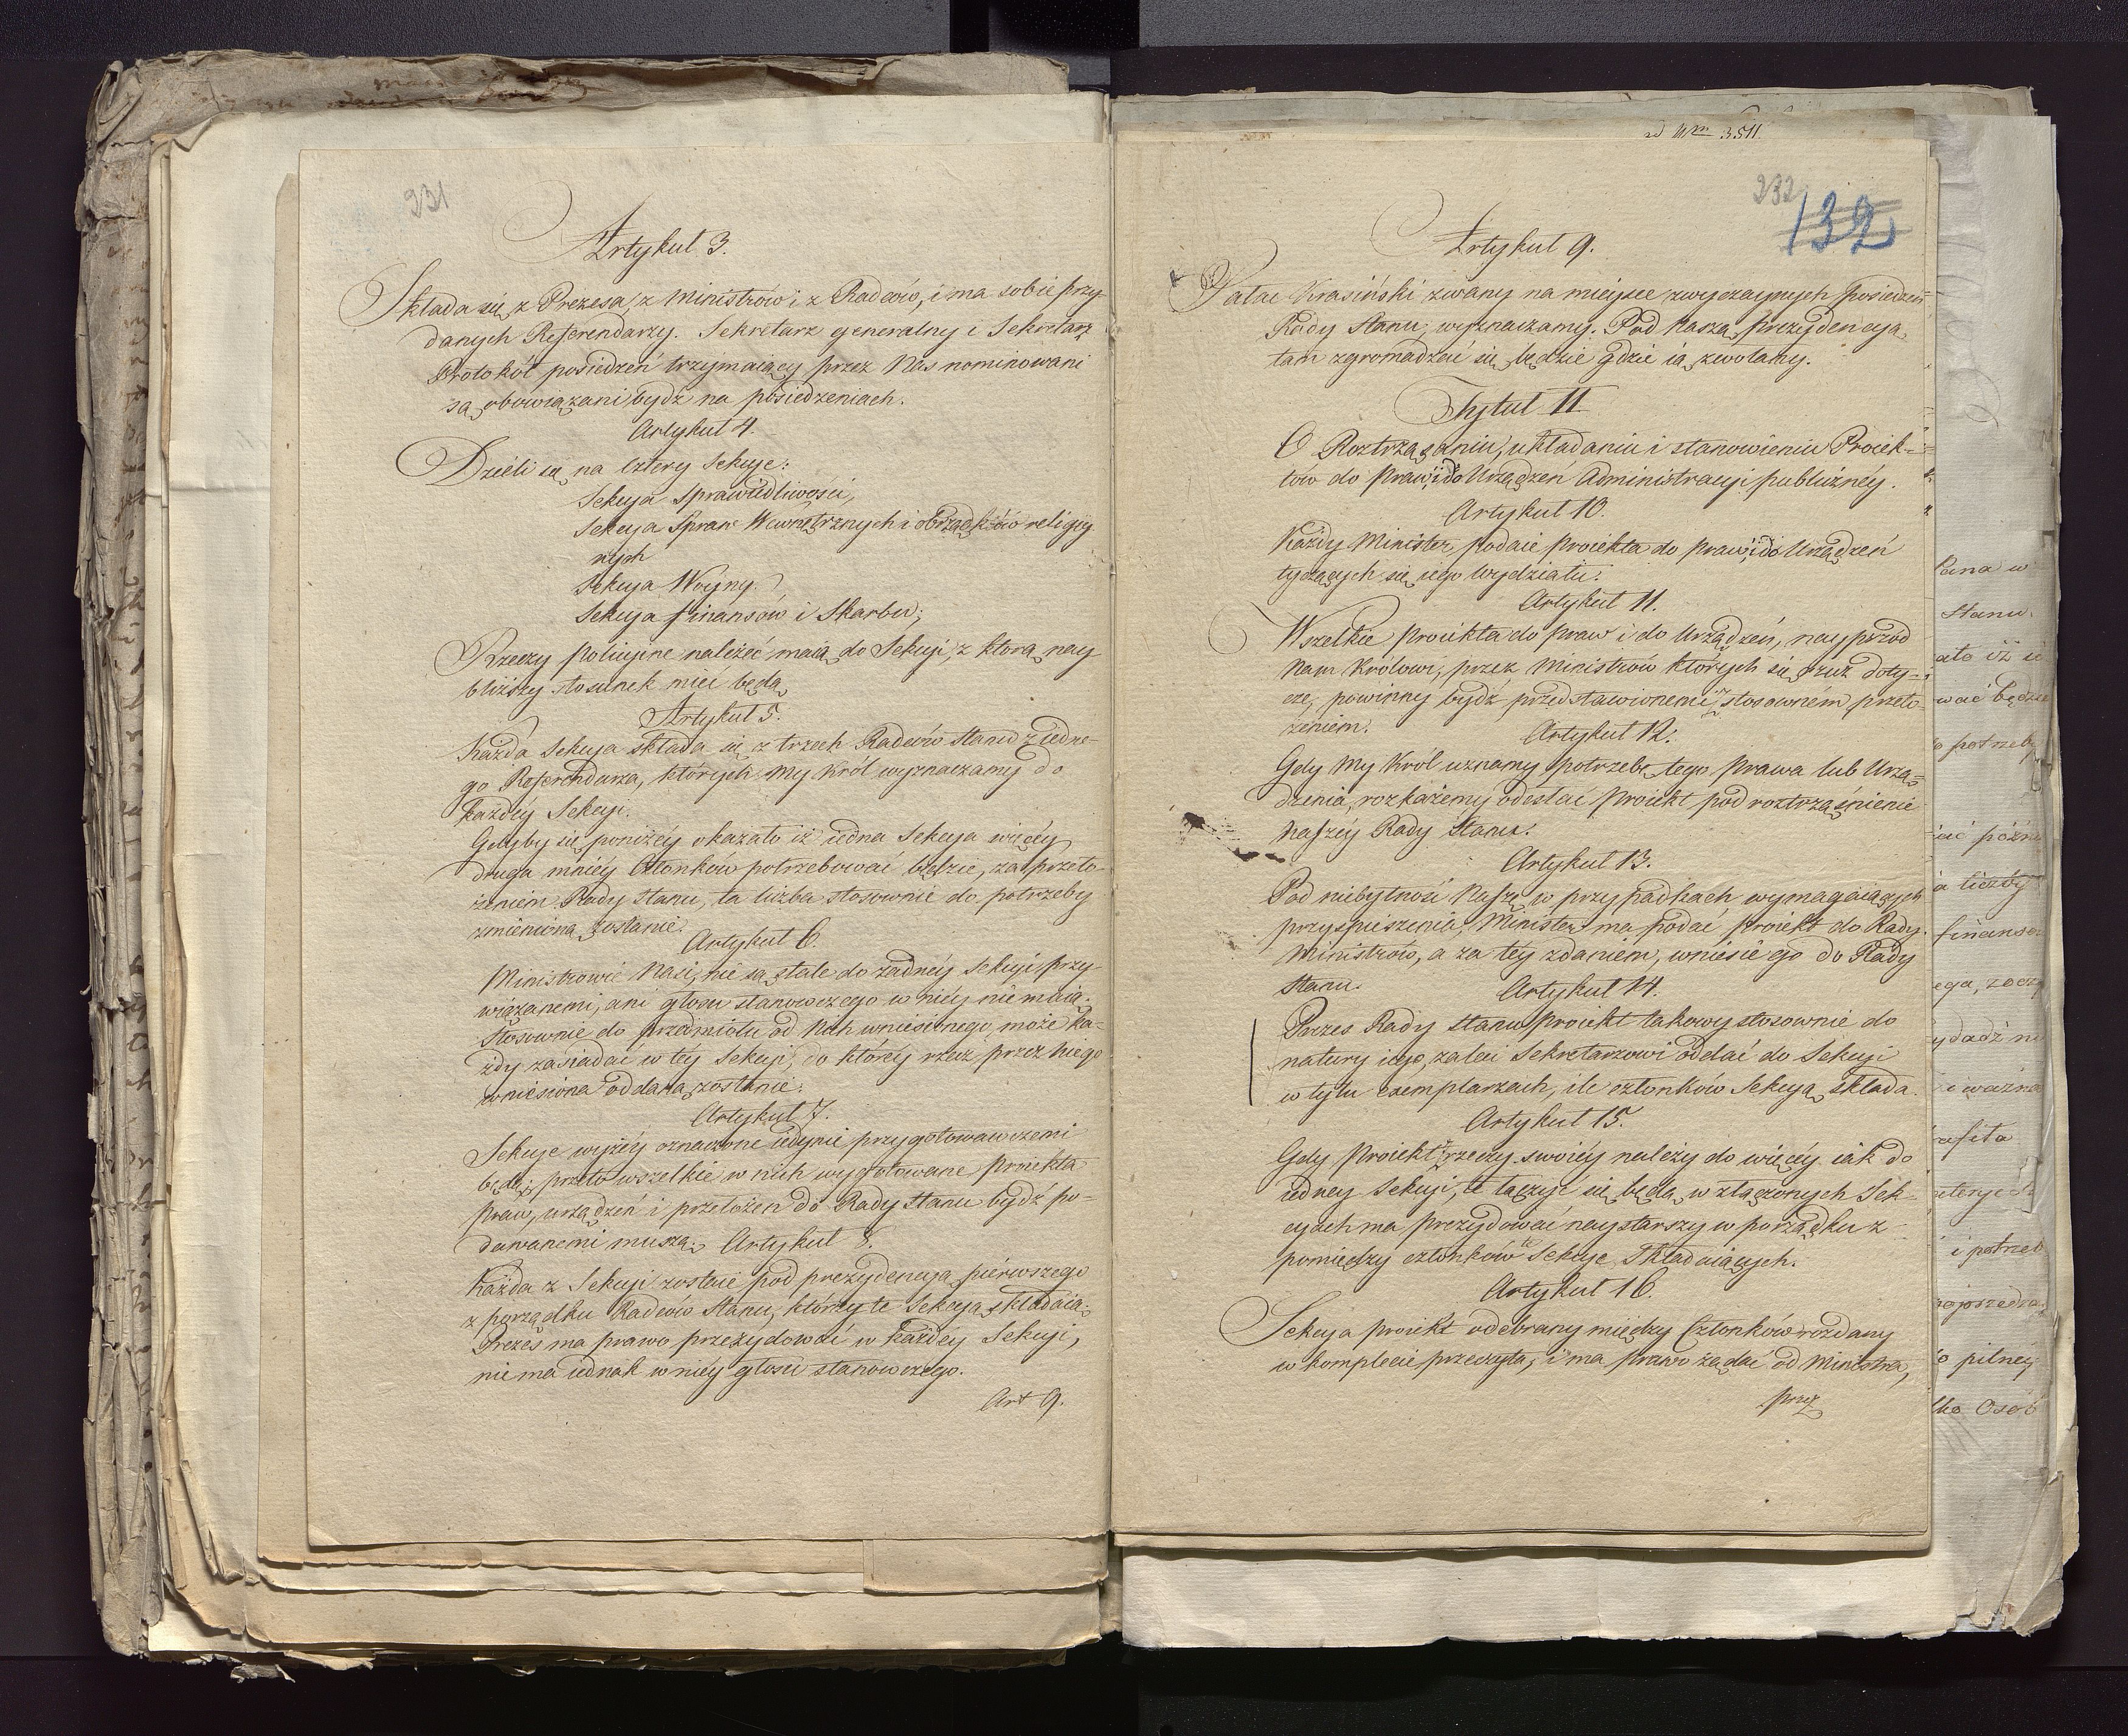 231
Artykuł 3.
Składa się z Prezesa, z Ministrów i z Radców, i ma sobie przy-
danych Referendarzy. Sekretarz generalny i Sekretarz
Protokół posiedzeń trzymaiący, przez Nas nominowani
są obowiązani bydź na posiedzeniach.
Artykuł 4.
Dzieli się na cztery Sekcye:
Sekcya Sprawiedliwości,
Sekcya Spraw Wewnętrznych i obrządków religiy
nych
Sekcya Woyny.
Sekcya finansów i Skarbu;
Rzeczy Policyine należeć maią do Sekcyi, z którą nay
bliższy stosunek mieć będą
Artykuł 5.
Każda Sekcya składa się z trzech Radców Stanu z iedne-
go Referendarza, których My Król wyznaczamy do
każdéy Sekcyi.
Gdyby się poniżéy okazało iż iedna Sekcya więcéy
druga mniéy Członków potrzebować będzie, za przeło-
żeniem Rady Stanu, ta liczba stosownie do potrzeby
zmienioną zostanie.
Artykuł 6.
Ministrowie Nasi, nie są stale do żadnéy Sekcyi przy-
wiązanemi, ani głosu stanowczego w niéy nie maią.
Stosownie do przedmiotu od Nich wniesionego, może ka-
żdy zasiadać w téy Sekcyi, do któréy rzecz przez niego
wniesiona oddaną zostanie.
Artykuł 7.
Sekcye wyżéy oznaczone iedynie przygotowawczemi
będą; przeto wszelkie w nich wygotowane proiekta
praw, urządzeń i przełożeń do Rady Stanu bydź po-
dawanemi muszą. Artykuł 8.
Każda z Sekcyi zostaie pod prezydencyą pierwszego
z porządku Radców Stanu, którzy te Sekcyą składaią.
Prezes ma prawo prezydować w każdéy Sekcyi,
nie ma iednak w niéy głosu stanowczego.
Art 9.
3511.
232
132
Artykuł 9.
Pałac Krasiński zwany na mieysce zwyczaynych posiedzeń
Rady Stanu, wyznaczamy. Pod Naszą prezydencyą
tam zgromadzać się będzie gdzie ią zwołamy.
Tytuł II
O Roztrząsaniu, układaniu i stanowieniu Proiek-
tów do praw, i do Urządzeń Administracyi publicznéy.
Artykuł 10.
Każdy Minister podaie proiekta do praw, i do Urządzeń
tyczących się iego Wydziału.
Artykuł 11.
Wszelkie proiekta do praw i do Urządzeń, nayprzód
Nam Królowi, przez Ministrów których się rzecz doty-
cze, powinny bydź przedstawionemi z stosowném przeło-
żeniem.
Artykuł 12.
Gdy My Król uznamy potrzebę tego prawa lub Urzą-
dzenia, rozkażemy odesłać proiekt pod roztrząśnienie
Naszéy Rady Stanu.
Artykuł 13.
Pod niebytność Naszą w przypadkach wymagaiących
przyspieszenia, Minister ma podać proiekt do Rady
Ministrów, a za téy zdaniem, wniesie go do Rady
Stanu.
Artykuł 14.
Prezes Rady Stanu proiekt takowy stosownie do
natury iego, zaleci Sekretarzowi oddać do Sekcyi
w tylu exemplarzach, ile członków Sekcyą składa.
Artykuł 15.
Gdy proiekt z rzeczy swoiéy należy do więcéy iak do
iedney Sekcyi, te łączyć się będą, w złączonych Sek-
cyach ma prezydować naystarszy w porządku z
pomiędzy członków te Sekcye Składaiących.
Artykuł 16.
Sekcya proiekt odebrany między Członków rozdany
w komplecie przeczyta, i ma prawo żądać od Ministra,
przez
Stanu.
finanso
i potrzeb
pilnéy
Osób